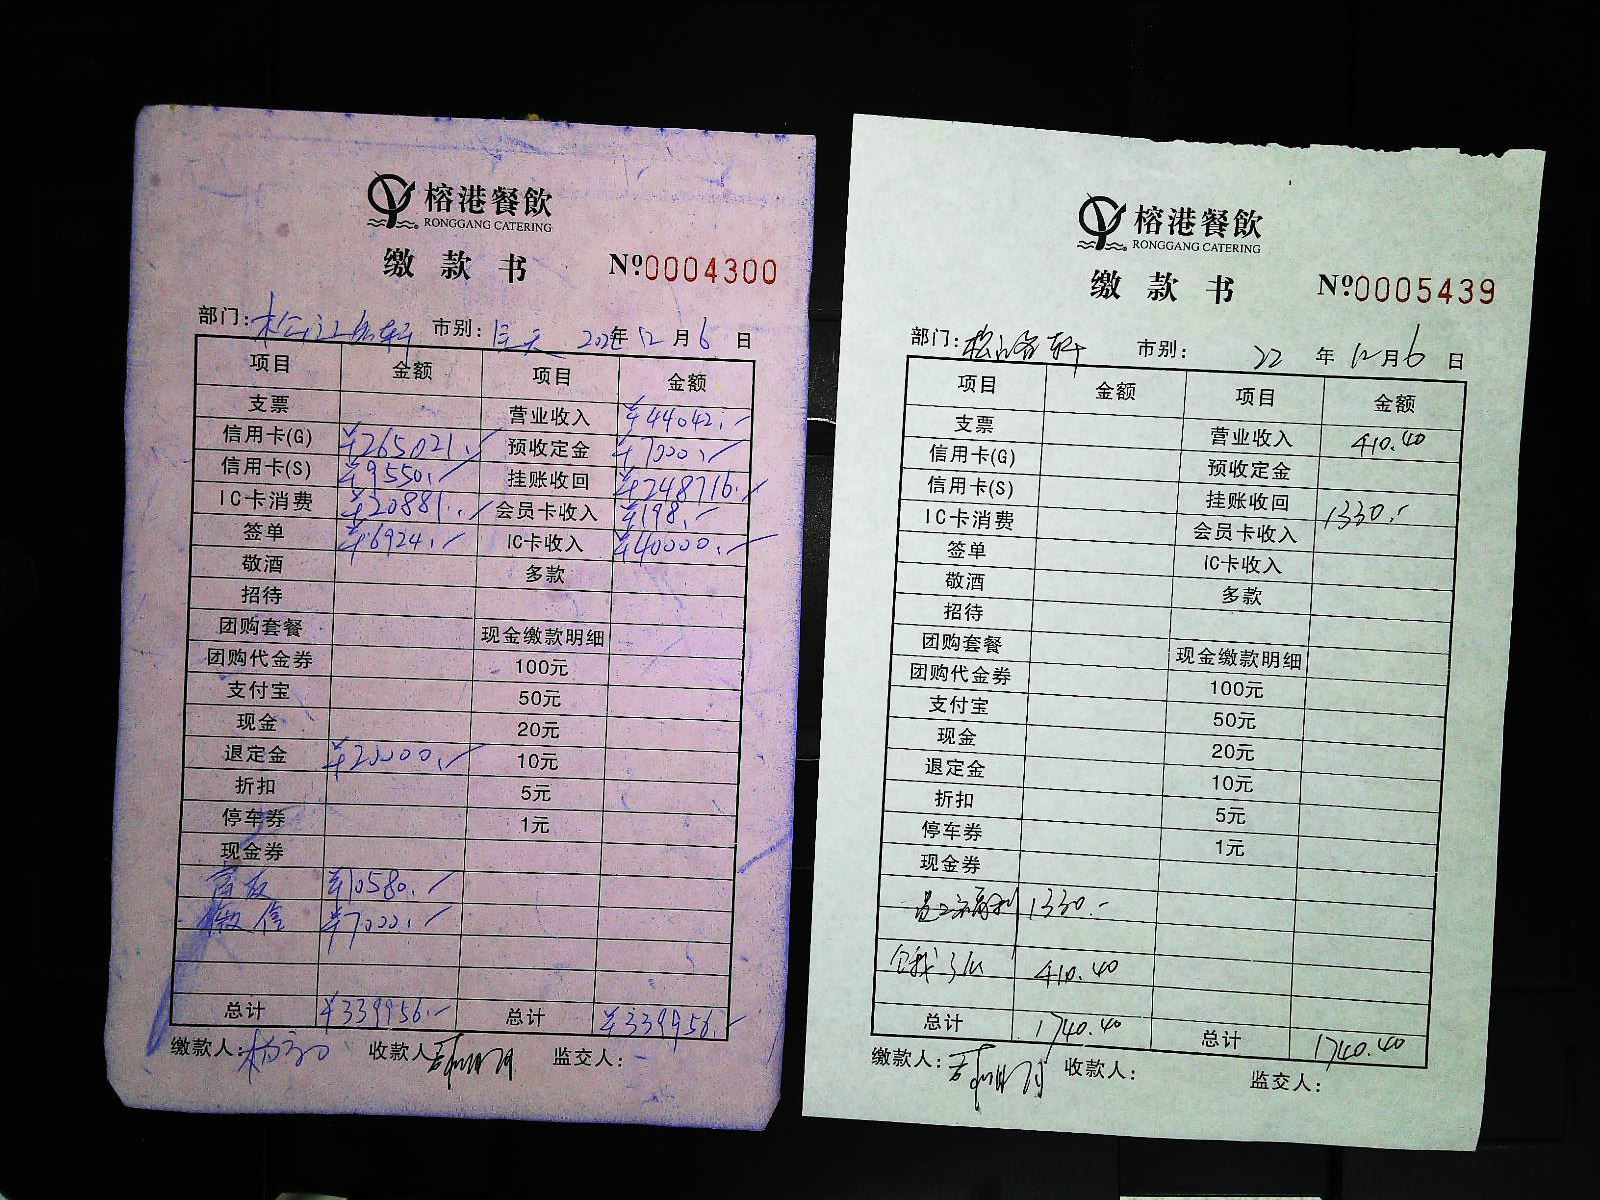 榕港餐飲
RONGGANG CATERING
缴款书 №0004300
部门: 市别: 年12月6日
项目 金额 项目 金额
支票 营业收入 ¥44042.-
信用卡(G) ¥265021.- 预收定金 ¥7000.-
信用卡(S) ¥9550.- 挂账收回 ¥248716.-
IC卡消费 ¥20881.- 会员卡收入 ¥198.-
签单 ¥6924.- IC卡收入 ¥40000.-
敬酒 多款
招待
团购套餐 现金缴款明细
团购代金券 100元
支付宝 50元
现金 20元
退定金 ¥20000.- 10元
折扣 5元
停车券 1元
现金券
¥10580.-
微信 ¥7000.-
总计 ¥339956.- 总计 ¥339956.-
缴款人: 收款人: 监交人:
榕港餐飲
RONGGANG CATERING
缴款书 №0005439
部门: 市别: 22年12月6日
项目 金额 项目 金额
支票 营业收入 410.40
信用卡(G) 预收定金
信用卡(S) 挂账收回 1330.-
IC卡消费 会员卡收入
签单 IC卡收入
敬酒 多款
招待
团购套餐 现金缴款明细
团购代金券 100元
支付宝 50元
现金 20元
退定金 10元
折扣 5元
停车券 1元
现金券
员工福利 1330.-
410.40
总计 1740.40 总计 1740.40
缴款人: 收款人: 监交人: